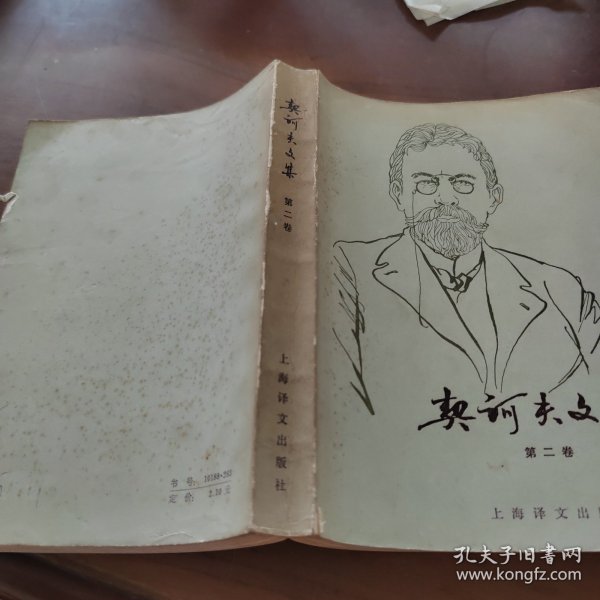 契诃夫文集
第二卷
上海译文出版社
契诃夫文
第二卷
上海译文出
书号：10188·283
定价：2.20元
孔夫子旧书网
www.kongfz.com